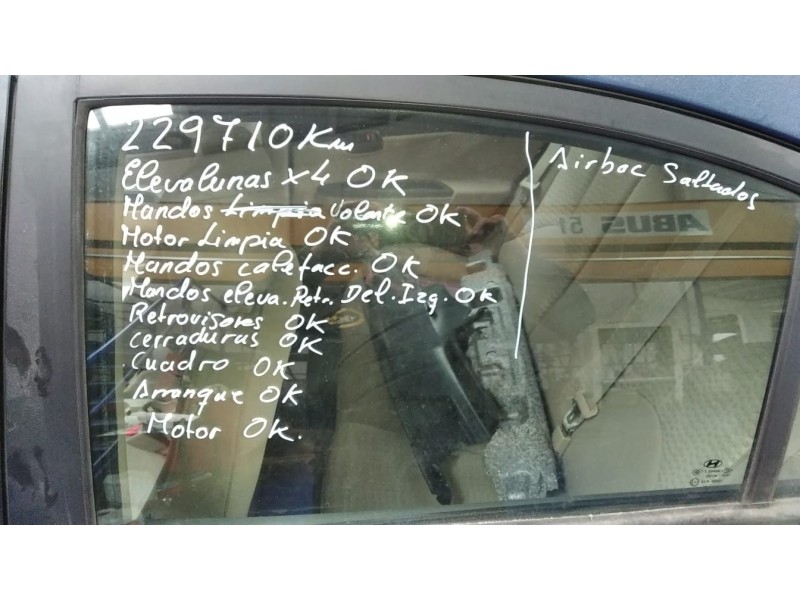 229710 Km
Elevalunas x4 OK
Mandos Limpia Volante OK
Motor Limpia OK
Mandos calefacc. OK
Mandos eleva. Retr. Del. Izq. OK
Retrovisores OK
cerraduras OK
Cuadro OK
Arranque OK
Motor OK.
Airbac Saltados
ABUS 51